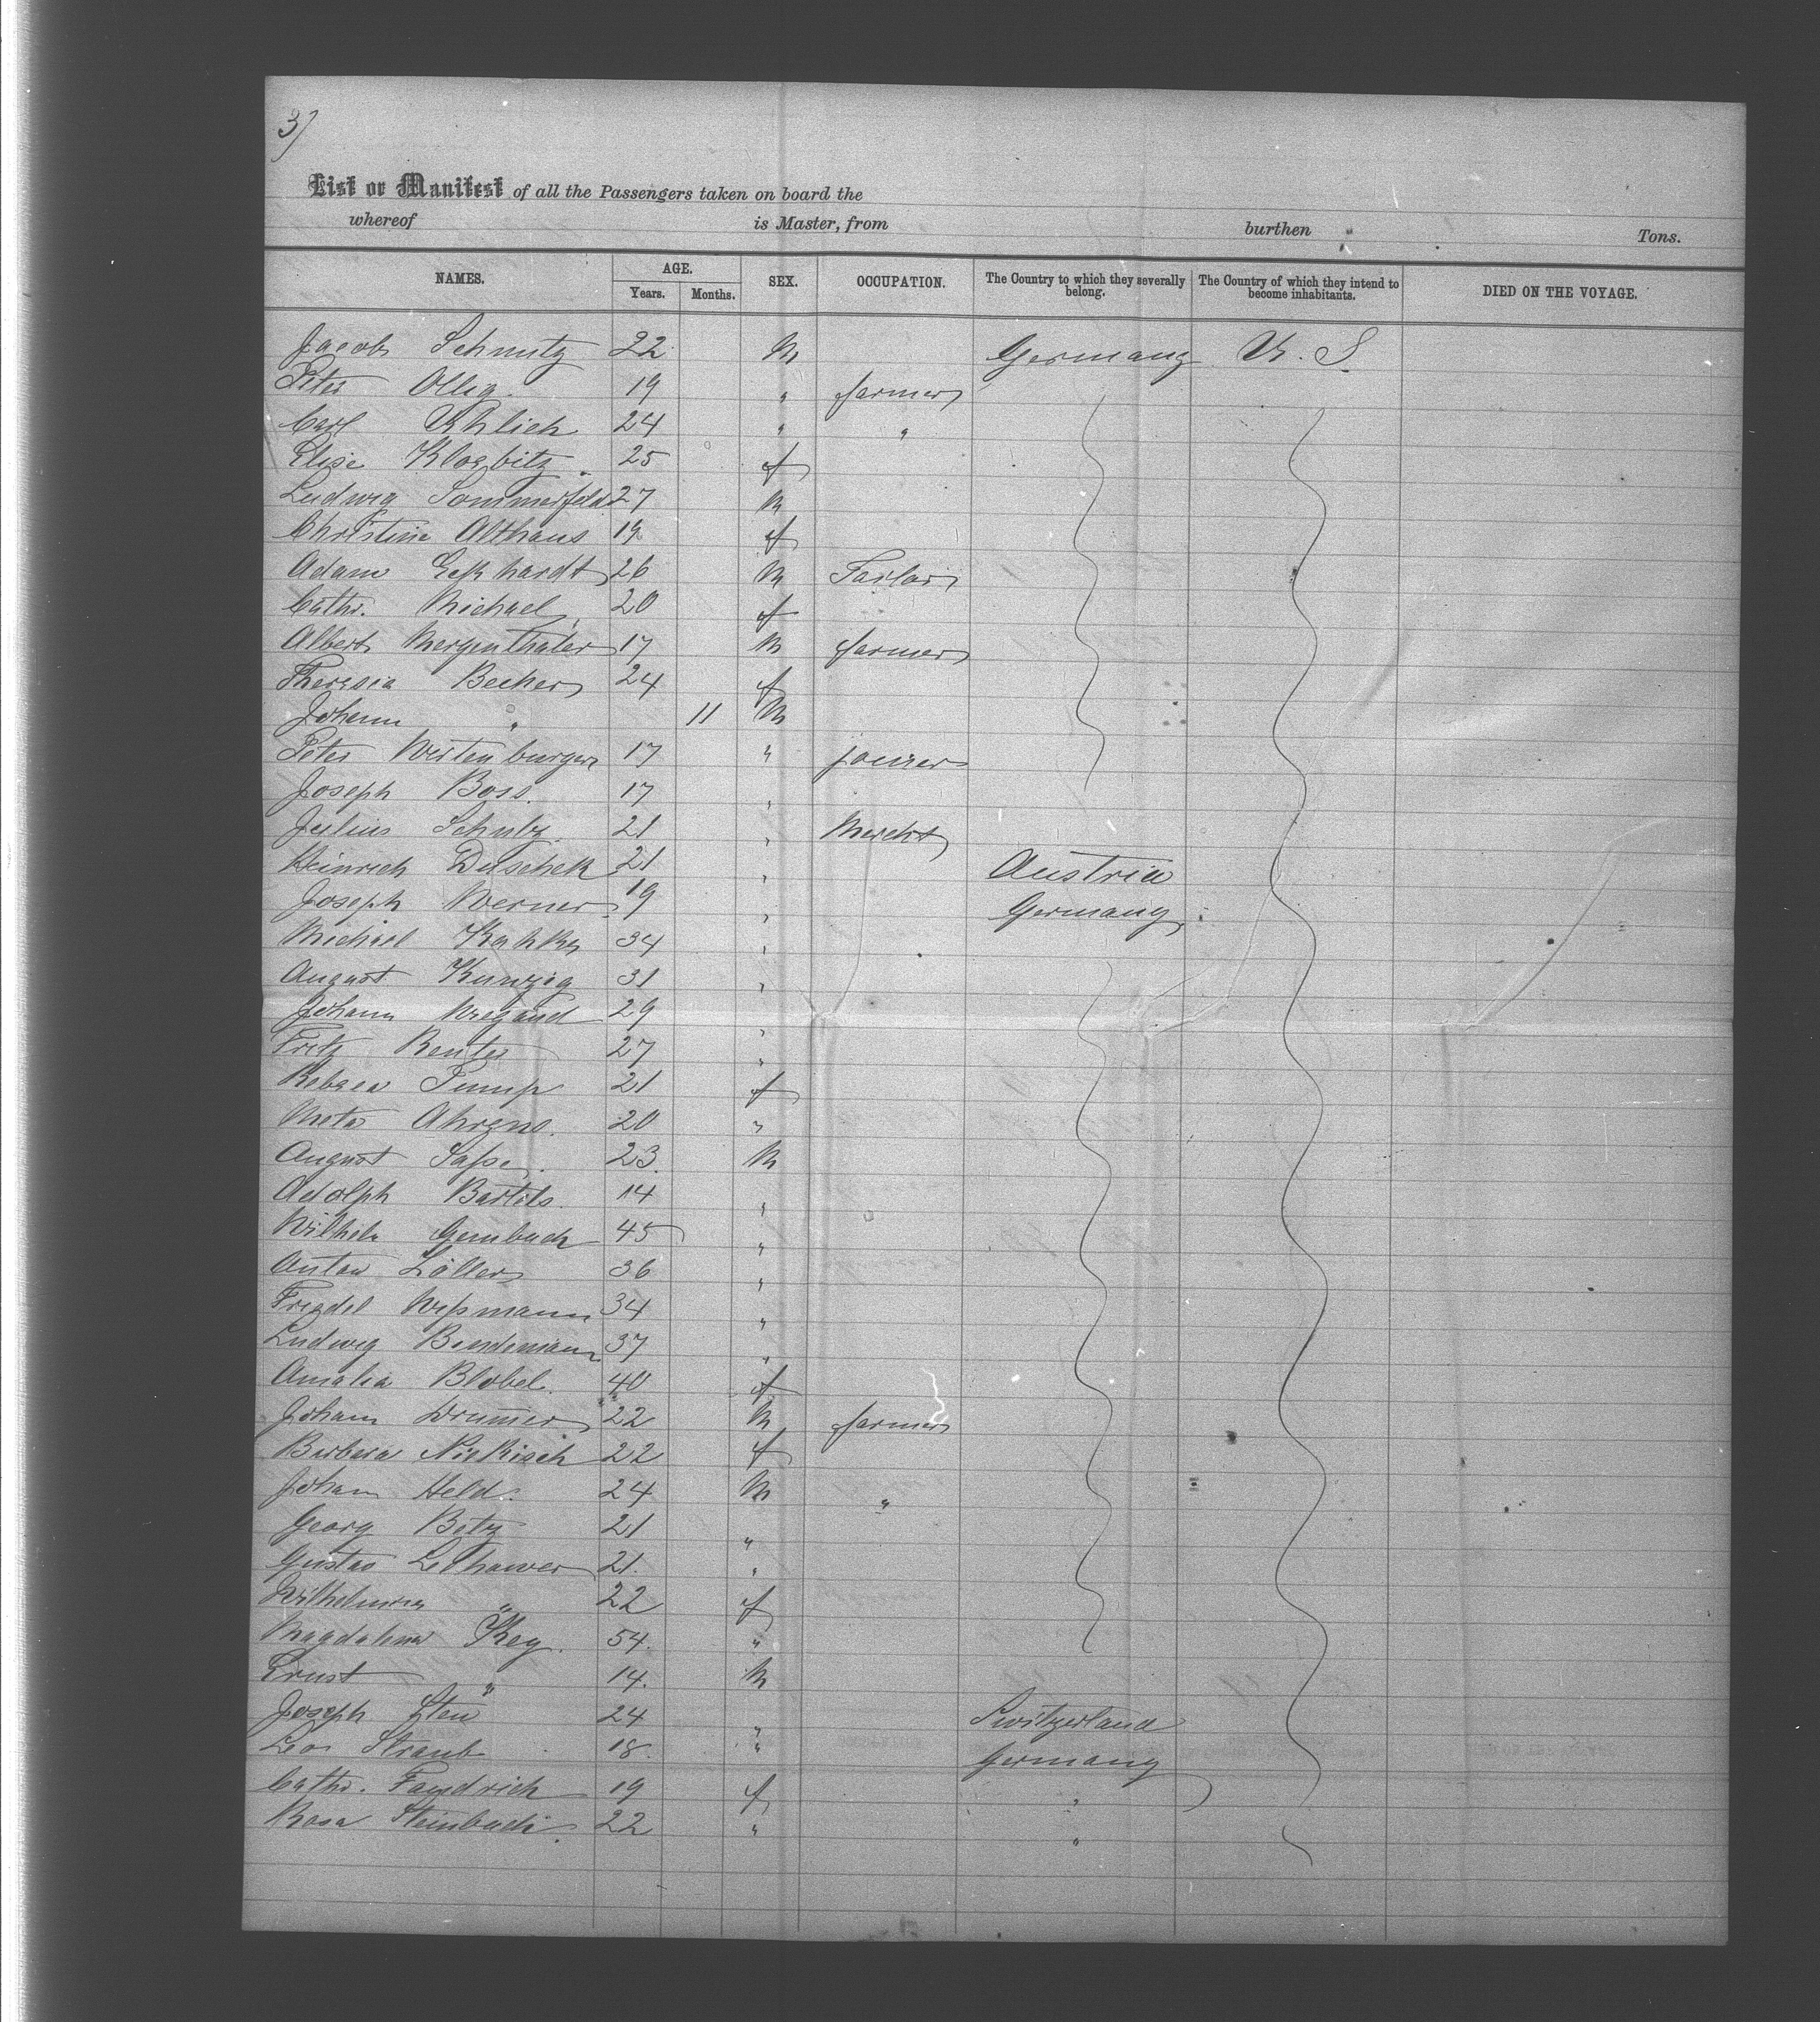 3)
List or Manifest of all the Passengers taken on board the
whereof is Master, from burthen Tons.
NAMES. AGE. Years. Months. SEX. OCCUPATION. The Country to which they severally belong. The Country of which they intend to become inhabitants. DIED ON THE VOYAGE.
Jacob Schmitz 22 M Germany U. S.
Peter Ollig 19 " farmer
Carl Uhlich 24 " "
Elise 25 f
Ludwig Sommerfeld 27 M
Christine Althaus 19 f
Adam Eckhardt 26 M Tailor
Cathr. Michael 20 f
Albert Mergenthaler 17 M farmer
Theresia Becker 24 f
Johann " 11 M
Peter Wertenburger 17 " joiner
Joseph Boss 17 "
Julius Schulz 21 " Mercht
Heinrich Duschek 21 " Austria
Joseph Werner 19 " Germany
Michael 34 "
August Kunzig 31 "
Johann Wiegand 29 "
Fritz Reuter 27 "
Rebeca Pump 21 f
Meta Ahrens. 20 "
August Saße. 23. M
Adolph Bartels. 14 "
Wilhelm Gembach 45 "
Anton Löller 36 "
Friedel Wißmann 34 "
Ludwig Bendemann 37 "
Amalia Blobel. 40 f
Johann 22 M farmer
Barbara Niekisch 22 f
Johann Held. 24 M "
Georg Betz 21 "
Gustav 21. "
Wilhelmina " 22 f
Magdalena Key. 54. "
Ernst " 14. M
Joseph 24 " Switzerland
Leo Straub 18. " Germany
Cathr. Fandrich 19 f "
Rosa Steinbach. 22 " "